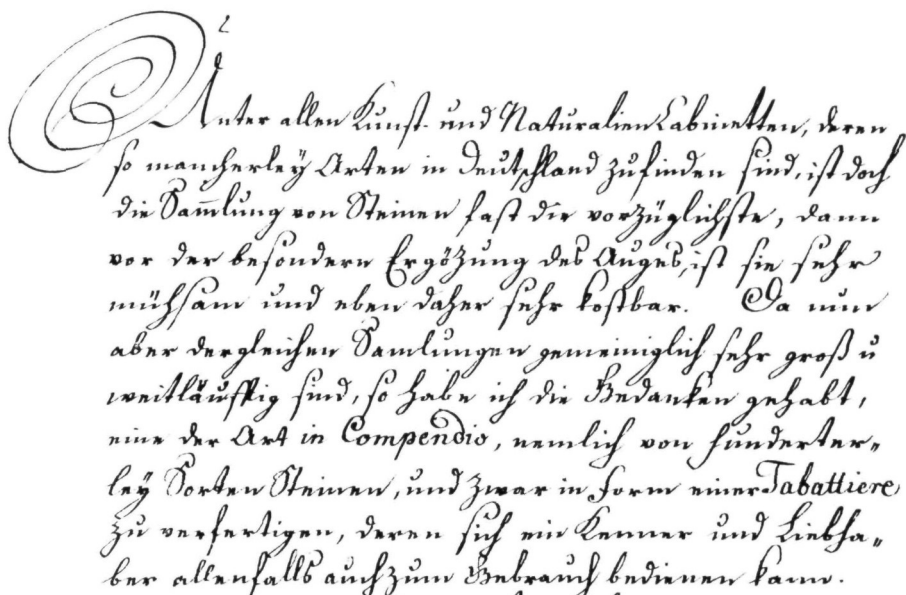 Unter allen Kunst- und Naturalien Cabinetten, deren
so mancherley Arten in Deutschland zufinden sind, ist doch
die Sam̄lung von Steinen fast die vorzüglichste, dann
vor der besondern Ergözung des Auges, ist sie sehr
mühsam und eben daher sehr kostbar. Da nun
aber dergleichen Samlungen gemeiniglich sehr groß u
weitläuffig sind, so habe ich die Gedanken gehabt,
eine der Art in Compendio, nemlich von hunderter„
ley Sorten Steinen, und zwar in Form einer Tabattiere
zu verfertigen, deren sich ein Kenner und Liebha„
ber allenfalls auch zum Gebrauch bedienen kann.